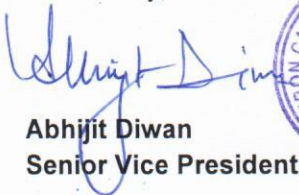 Abhijit Diwan
Abhijit Diwan
Senior Vice President